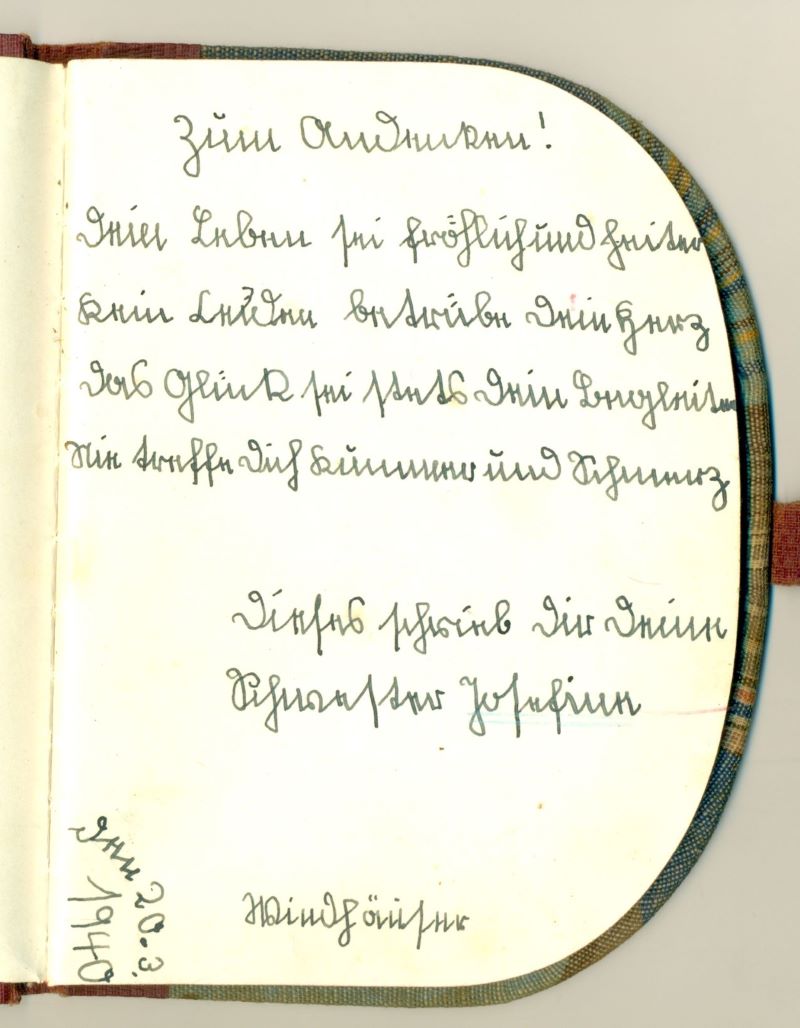 Zum Andenken!
Dein Leben sei fröhlich und heiter
Kein Leiden betrübe Dein Herz
Das Glück sei stets Dein Begleiter
Nie treffe Dich Kummer und Schmerz
Dieses schrieb Dir Deine
Schwester Josefine
Windhäuser
Den 20.3.
1940